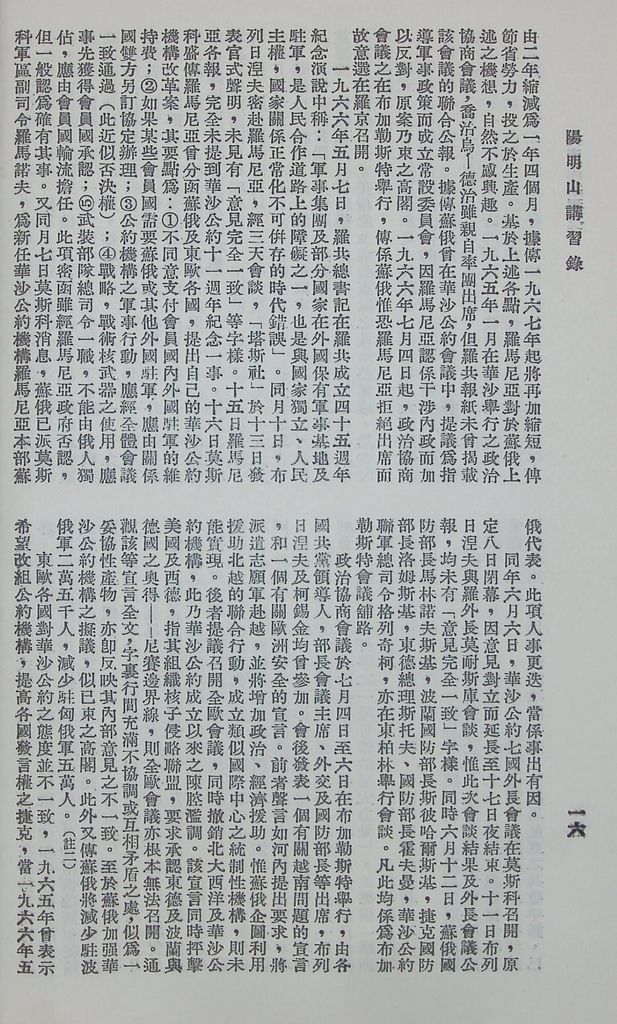 陽明山講習錄
一六
由二年縮減爲一年四個月，據傳一九六七年起將再加縮短，俾
節省勞力，投之於生產。基於上述各點，羅馬尼亞對於蘇俄上
述之機想，自然不感興趣。一九六五年一月在華沙舉行之政治
協商會議，喬治烏—德治雖親自率團出席，但羅共報紙未曾揭載
該會議的聯合公報。據傳蘇俄曾在華沙公約會議中，提議爲指
導軍事政策而成立常設委員會，因羅馬尼亞認係干涉內政而加
以反對，原案乃束之高閣。一九六六年七月四日起，政治協商
會議之在布加勒斯特舉行，傳係蘇俄惟恐羅馬尼亞拒絕出席而
故意選在羅京召開。
一九六六年五月七日，羅共總書記在羅共成立四十五週年
紀念演說中稱：「軍事集團及部分國家在外國保有軍事基地及
駐軍，是人民合作道路上的障礙之一，也是與國家獨立、人民
主權，國家關係正常化不可併存的時代錯誤」。同月十日，布
列日涅夫密赴羅馬尼亞，經三天會談，「塔斯社」於十三日發
表官式聲明，未見有「意見完全一致」等字樣。十五日羅馬尼
亞各報，完全未提到華沙公約十一週年紀念一事。十六日莫斯
科盛傳羅馬尼亞曾分函蘇俄及東歐各國，提出自己的華沙公約
機構改革案，其要點爲：①不同意支付會員國內外國駐軍的維
持費；②如果某些會員國需要蘇俄或其他外國駐軍，應由關係
國雙方另訂協定辦理；③公約機構之軍事行動，應經全體會議
一致通過（此近似否決權）；④戰略，戰術核武器之使用，應
事先獲得會員國承認；⑤武裝部隊總司令一職，不能由俄人獨
佔，應由會員國輪流擔任。此項密函雖經羅馬尼亞政府否認，
但一般認爲確有其事。又同月七日莫斯科消息，蘇俄已派莫斯
科軍區副司令羅馬諾夫，爲新任華沙公約機構羅馬尼亞本部蘇
俄代表。此項人事更迭，當係事出有因。
同年六月六日，華沙公約七國外長會議在莫斯科召開，原
定八日閉幕，因意見對立而延長至十七日夜結束。十一日布列
日涅夫與羅外長莫耐斯庫會談，惟此次會談結果及外長會議公
報，均未有「意見完全一致」字樣。同時六月十二日，蘇俄國
防部長馬林諾夫斯基，波蘭國防部長斯彼哈爾斯基，捷克國防
部長洛姆斯基，東德總理斯托夫、國防部長霍夫曼，華沙公約
聯軍總司令格列奇柯，亦在東柏林舉行會談。凡此均係爲布加
勒斯特會議舖路。
政治協商會議於七月四日至六日在布加勒斯特舉行，由各
國共黨領導人，部長會議主席、外交及國防部長等出席，布列
日涅夫及柯錫金均曾參加。會後發表一個有關越南問題的宣言
，和一個有關歐洲安全的宣言。前者聲言如河內提出要求，將
派遣志願軍赴越，並將增加政治、經濟援助。惟蘇俄企圖利用
援助北越的聯合行動，成立類似國際中心之統制性機構，則未
能實現。後者提議召開全歐會議，同時撤銷北大西洋及華沙公
約機構，此乃華沙公約成立以來之陳腔濫調。該宣言同時抨擊
美國及西德，指其組織核子侵略聯盟，要求承認東德及波蘭與
德國之奧得——尼賽邊界線，則全歐會議亦根本無法召開。通
觀該等宣言全文，字裏行間充滿不協調或互相矛盾之處，似爲一
妥協性產物，亦卽反映其內部意見之不一致。至於蘇俄加强華
沙公約機構之擬議，似已束之高閣。此外又傳蘇俄將減少駐波
俄軍二萬五千人，減少駐匈俄軍五萬人。（註二）
東歐各國對華沙公約之態度並不一致，一九六五年曾表示
希望改組公約機構，提高各國發言權之捷克，當一九六六年五